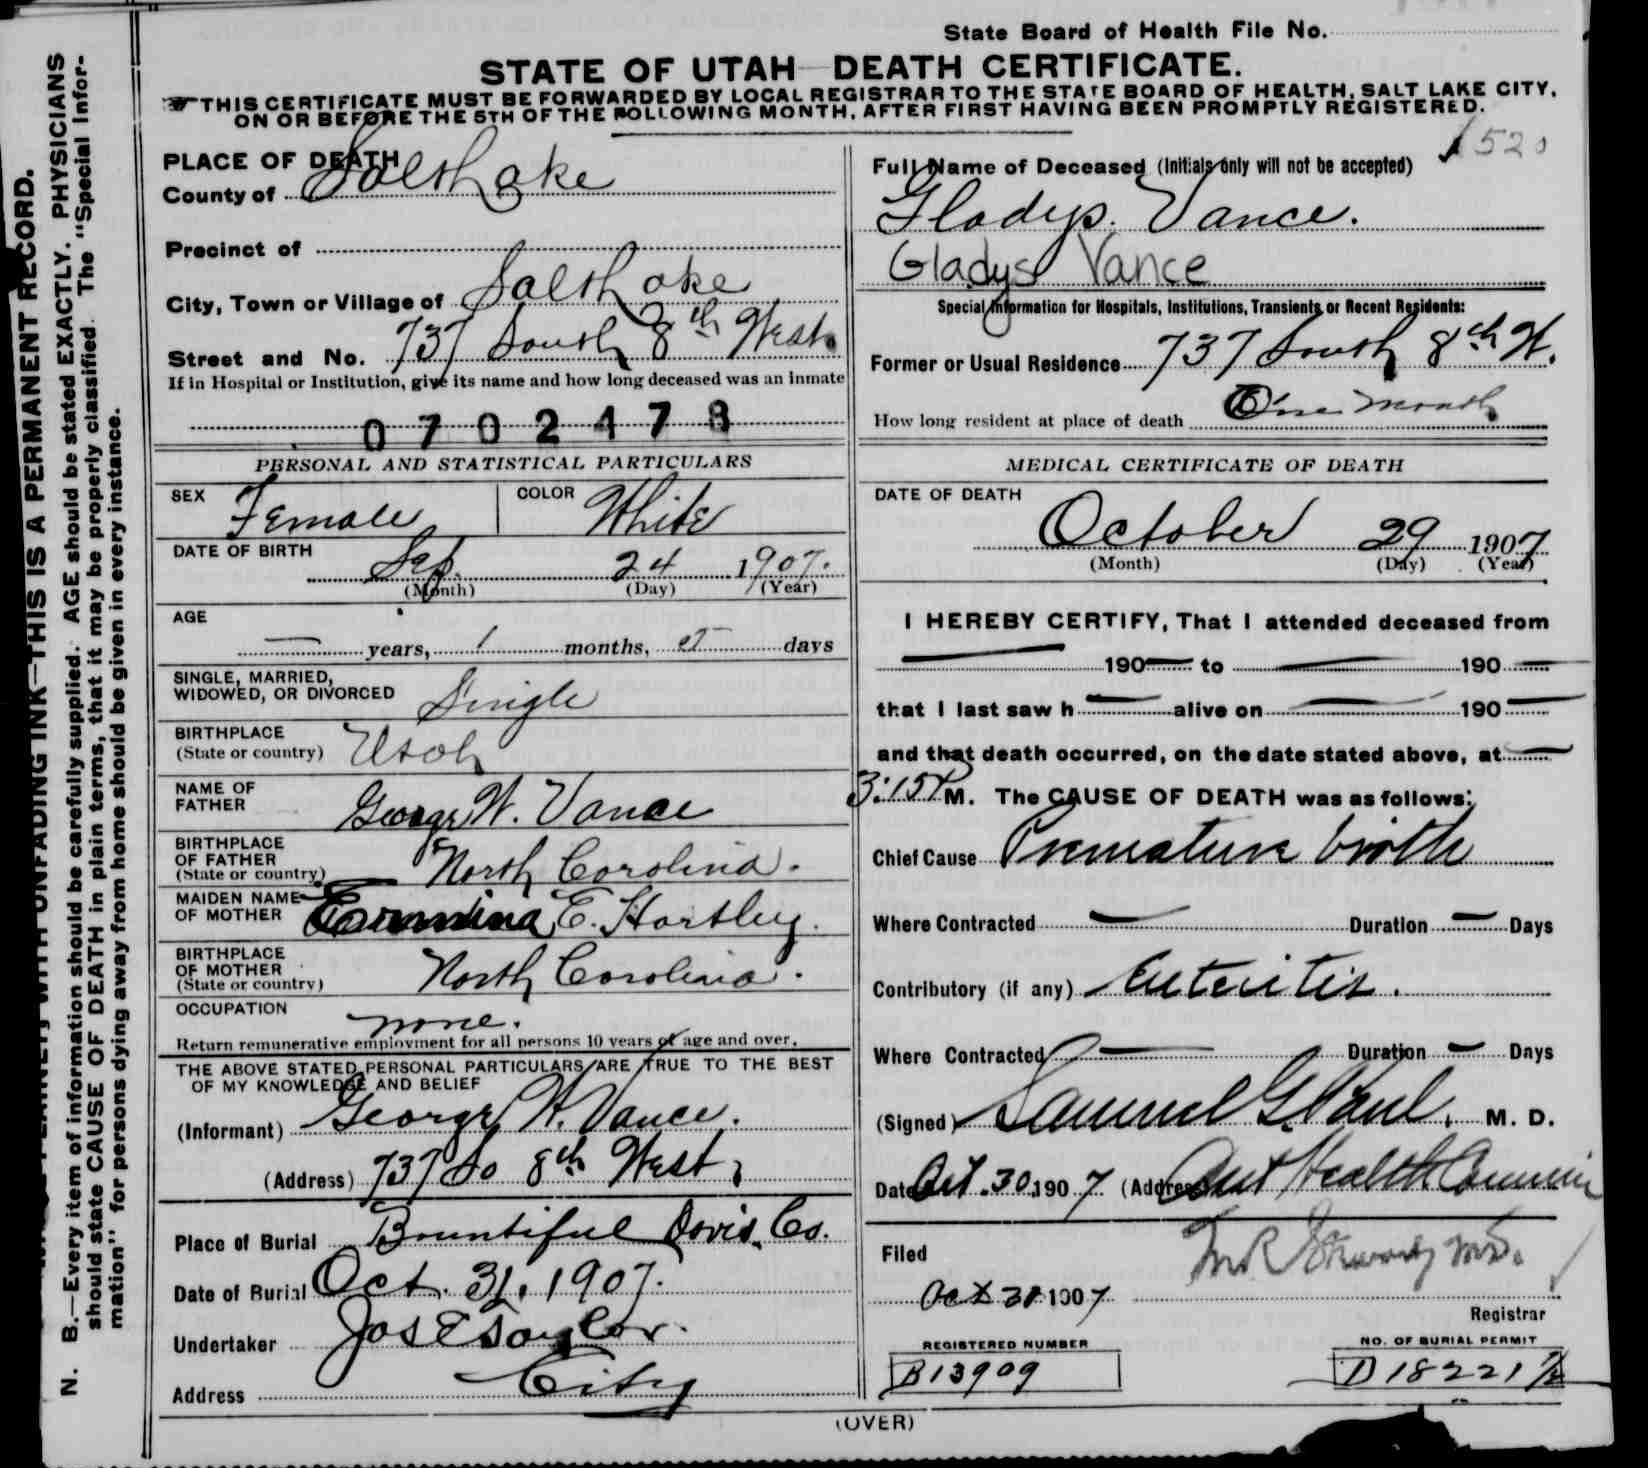 State Board of Health File No.
STATE OF UTAH—DEATH CERTIFICATE.
THIS CERTIFICATE MUST BE FORWARDED BY LOCAL REGISTRAR TO THE STATE BOARD OF HEALTH, SALT LAKE CITY,
ON OR BEFORE THE 5TH OF THE FOLLOWING MONTH, AFTER FIRST HAVING BEEN PROMPTLY REGISTERED.
N. B.—Every item of information should be carefully supplied. AGE should be stated EXACTLY. PHYSICIANS
should state CAUSE OF DEATH in plain terms, that it may be properly classified. The "Special Infor-
mation" for persons dying away from home should be given in every instance.
WITH UNFADING INK—THIS IS A PERMANENT RECORD.
PLACE OF DEATH
County of Salt Lake
Precinct of
City, Town or Village of Salt Lake
Street and No. 737 South 8th West
If in Hospital or Institution, give its name and how long deceased was an inmate
0702478
PERSONAL AND STATISTICAL PARTICULARS
SEX Female COLOR White
DATE OF BIRTH Sep. 24 1907.
(Month) (Day) (Year)
AGE
— years, 1 months, 5 days
SINGLE, MARRIED,
WIDOWED, OR DIVORCED Single
BIRTHPLACE
(State or country) Utah
NAME OF
FATHER George W. Vance
BIRTHPLACE
OF FATHER
(State or country) North Carolina.
MAIDEN NAME
OF MOTHER E. Hartley.
BIRTHPLACE
OF MOTHER
(State or country) North Carolina.
OCCUPATION
none.
Return remunerative employment for all persons 10 years of age and over.
THE ABOVE STATED PERSONAL PARTICULARS ARE TRUE TO THE BEST
OF MY KNOWLEDGE AND BELIEF
(Informant) George W. Vance.
(Address) 737 So 8th West
Place of Burial Bountiful Davis Co.
Date of Burial Oct. 31, 1907.
Undertaker Jos E Taylor.
Address City
1520
Full Name of Deceased (Initials only will not be accepted)
Gladys. Vance.
Gladys Vance
Special Information for Hospitals, Institutions, Transients or Recent Residents:
Former or Usual Residence 737 South 8th W.
How long resident at place of death One month
MEDICAL CERTIFICATE OF DEATH
DATE OF DEATH
October 29 1907
(Month) (Day) (Year)
I HEREBY CERTIFY, That I attended deceased from
— 190— to — 190—
that I last saw h — alive on — 190—
and that death occurred, on the date stated above, at —
3:15 P M. The CAUSE OF DEATH was as follows:
Chief Cause Premature birth
Where Contracted — Duration — Days
Contributory (if any) Enteritis.
Where Contracted — Duration — Days
(Signed) Samuel G. Paul, M. D.
Date Oct. 30. 1907 (Address) Asst Health Commiss
Filed
Oct 31 1907
Registrar
REGISTERED NUMBER
B13909
NO. OF BURIAL PERMIT
D 18221 1/2
(OVER)